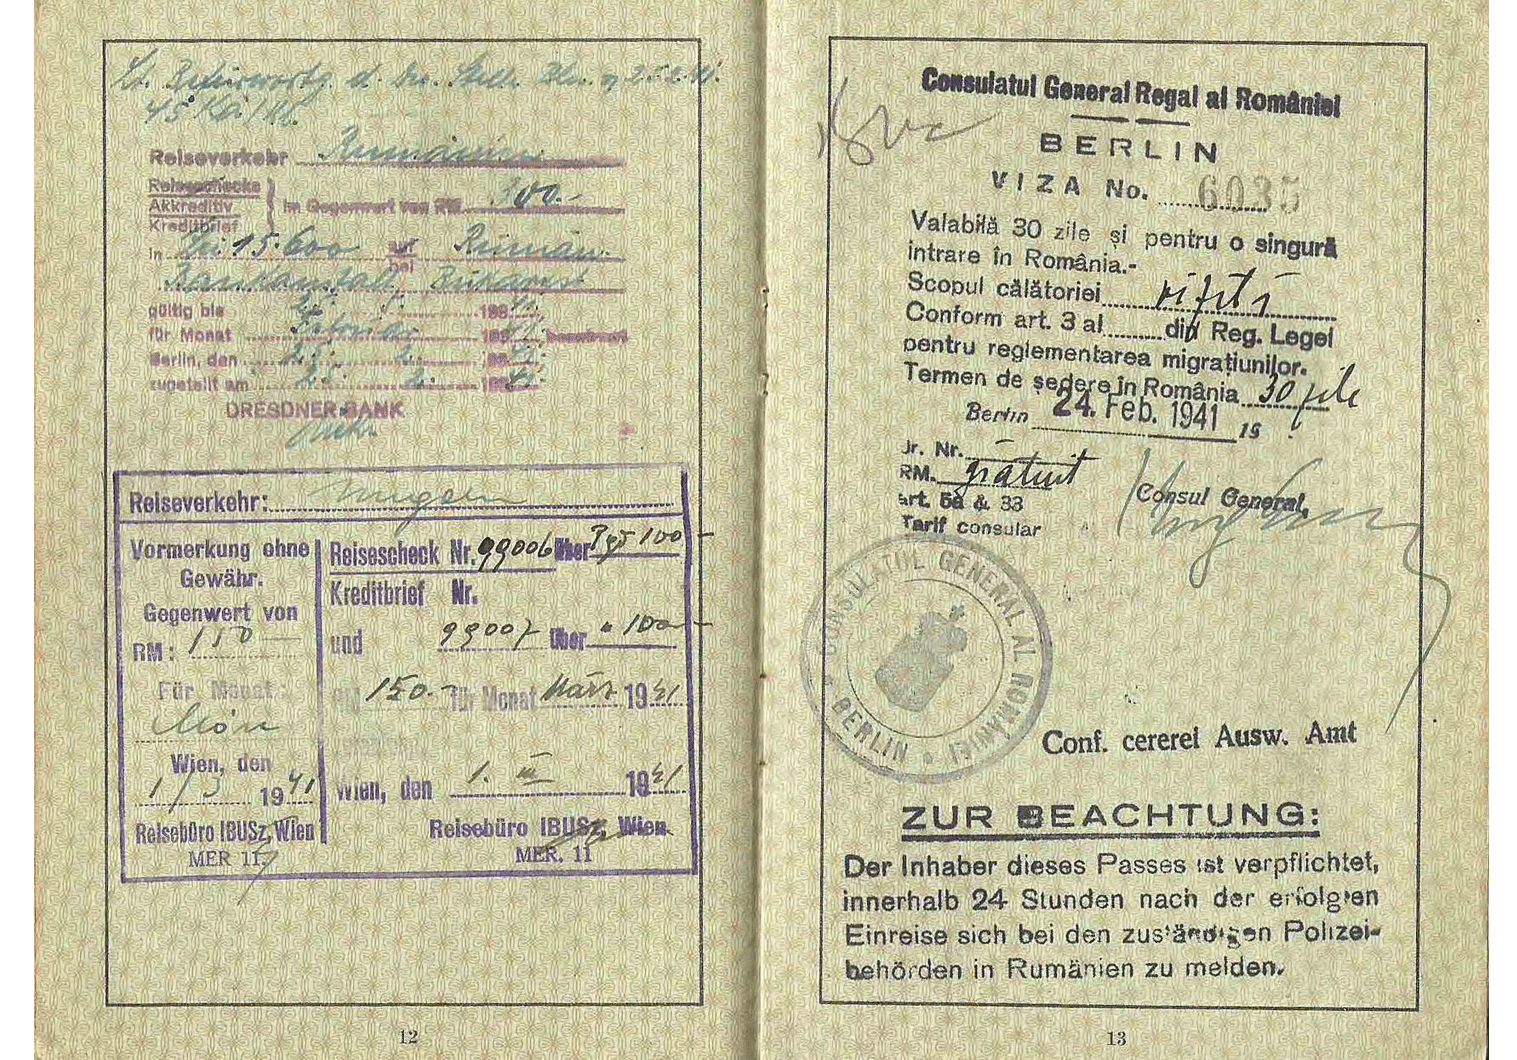 45
Reiseverkehr Rumänien
Reiseschecke
Akkreditiv
Kreditbrief
im Gegenwert von RM 300.-
in Lei 15.600 auf Rumän.
bei
Bankanstalt Bukarest
gültig bis 193
für Monat Februar 193
Berlin, den 193
zugeteilt am 193
DRESDNER BANK
Reiseverkehr: Ungarn
Vormerkung ohne
Gewähr.
Gegenwert von
RM: 150
Für Monat:
März
Wien, den
1/3 1941
Reisebüro IBUSz, Wien
MER 11
Reisescheck Nr. 99006 über Pgö 100-
Kreditbrief Nr.
und 99007 über " 100-
RM 150.- für Monat März 1941
Wien, den 1. III 1941
Reisebüro IBUSz, Wien
MER. 11
12
Consulatul General Regal al României
BERLIN
VIZA No. 6035
Valabilă 30 zile și pentru o singură
intrare în România.-
Scopul călătoriei
Conform art. 3 al din Reg. Legei
pentru reglementarea migrațiunilor.
Termen de ședere în România 30 zile
Berlin 24. Feb. 1941 19
Jr. Nr. -
RM. gratuit
art. 5a & 33
Tarif consular
Consul General,
CONSULATUL GENERAL AL ROMÂNIEI
BERLIN
Conf. cererei Ausw. Amt
ZUR BEACHTUNG:
Der Inhaber dieses Passes ist verpflichtet,
innerhalb 24 Stunden nach der erfolgten
Einreise sich bei den zuständigen Polizei-
behörden in Rumänien zu melden.
13